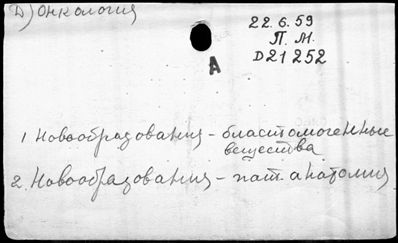 Д) Онкология
22.6.59
П. М.
Д21252
А
1 Новообразования – бластомогенные
вещества
2. Новообразования – пат. анатомия